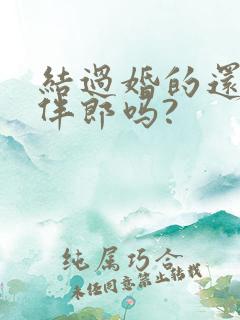 結過婚的還
伴郎吗?
純属巧合
未经同意禁止转载